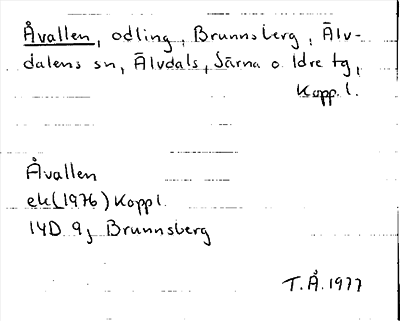 Åvallen, odling, Brunnsberg, Älv-
dalens sn, Älvdals, Särna o. Idre tg,
Kopp. l.
Åvallen
ek (1976) Kopp l.
14D 9j Brunnsberg
T.Å. 1977